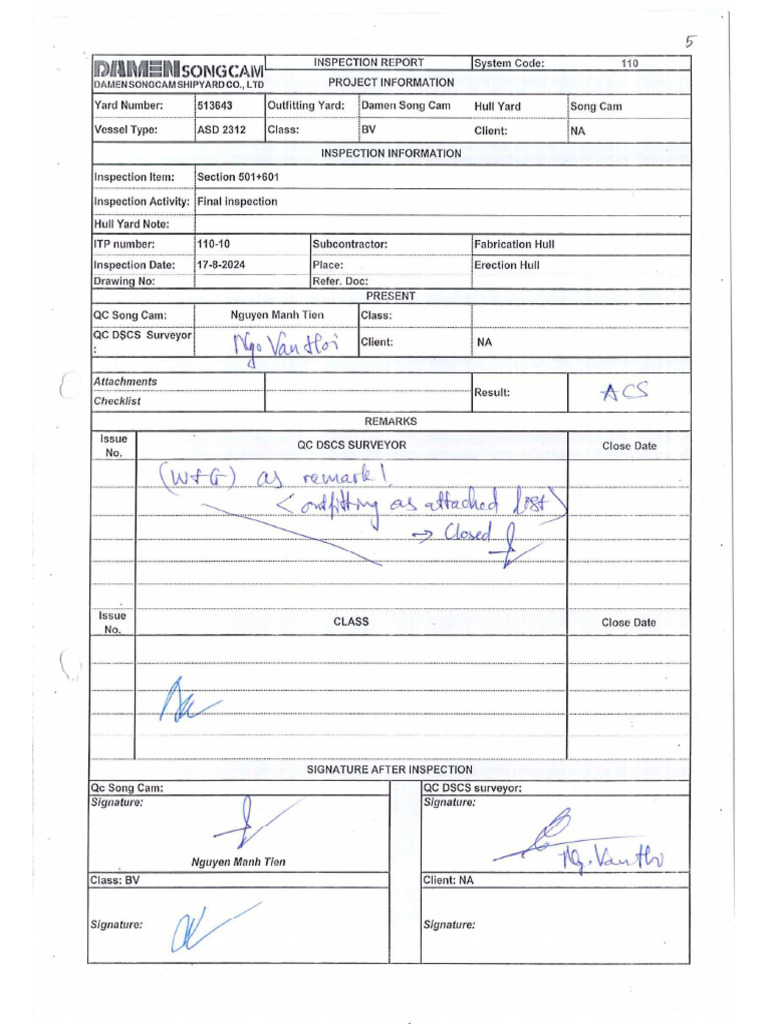 5
DAMEN SONG CAM INSPECTION REPORT System Code: 110
DAMEN SONG CAM SHIPYARD CO., LTD PROJECT INFORMATION
Yard Number: 513643 Outfitting Yard: Damen Song Cam Hull Yard Song Cam
Vessel Type: ASD 2312 Class: BV Client: NA
INSPECTION INFORMATION
Inspection Item: Section 501+601
Inspection Activity: Final inspection
Hull Yard Note:
ITP number: 110-10 Subcontractor: Fabrication Hull
Inspection Date: 17-8-2024 Place: Erection Hull
Drawing No: Refer. Doc:
PRESENT
QC Song Cam: Nguyen Manh Tien Class:
QC DSCS Surveyor : Ngo Van Hoi Client: NA
Attachments
Checklist
Result: ACS
REMARKS
Issue No. QC DSCS SURVEYOR Close Date
(W+G) as remark!
<outfitting as attached list>
→ Closed
Issue No. CLASS Close Date
SIGNATURE AFTER INSPECTION
Qc Song Cam: QC DSCS surveyor:
Signature: Signature:
Nguyen Manh Tien Ng. Van Hoi
Class: BV Client: NA
Signature: Signature: